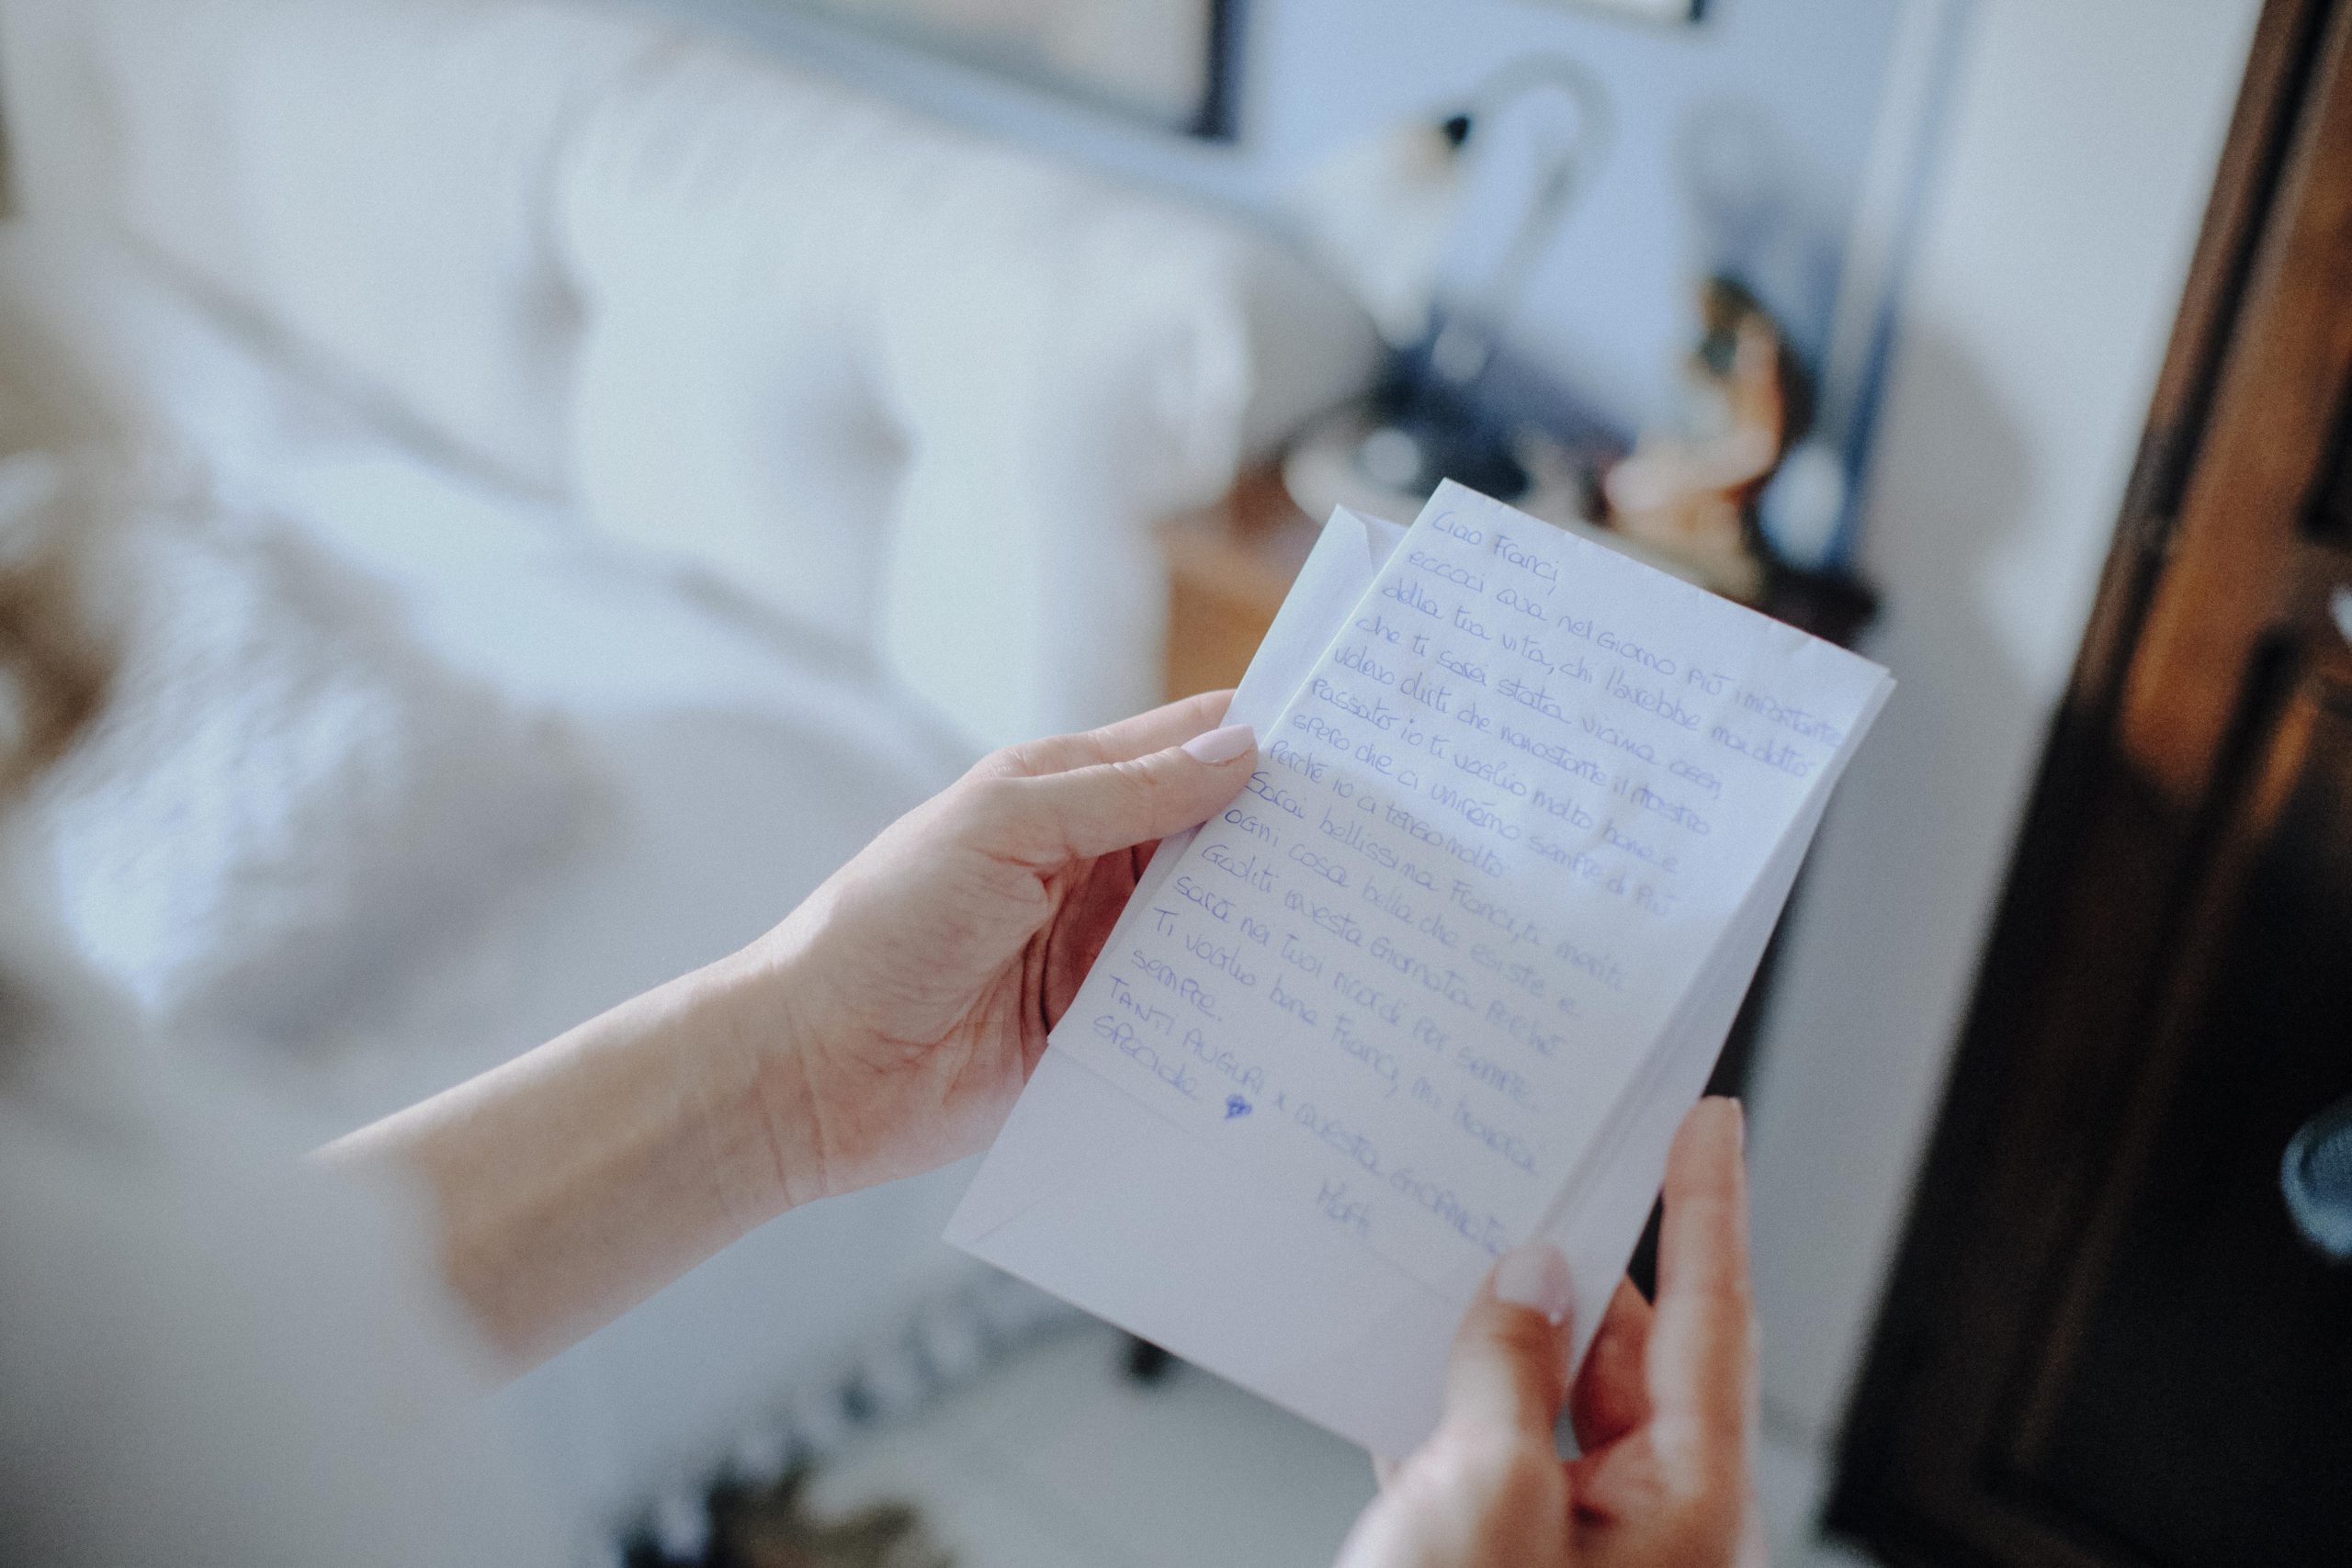 Ciao Franci,
eccoci qua nel Giorno più importante
della tua vita, chi l'avrebbe mai detto
che ti sarei stata vicina oggi,
volevo dirti che nonostante il nostro
passato io ti voglio molto bene e
spero che ci uniremo sempre di più
perché io ci tengo molto.
Sarai bellissima Franci, ti meriti
ogni cosa bella che esiste e
Goditi questa Giornata perché
sarà nei tuoi ricordi per sempre.
Ti voglio bene Franci, mi troverai
sempre.
TANTI AUGURI x questa GIORNATA
speciale
Marti